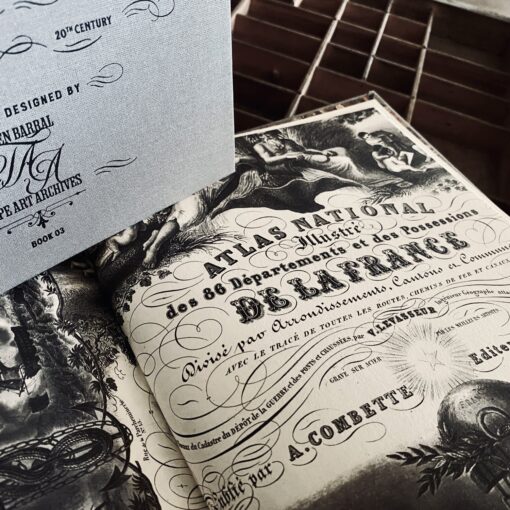 20TH CENTURY
DESIGNED BY
EN BARRAL
TAA
PE ART ARCHIVES
BOOK 03
ATLAS NATIONAL
Illustré
des 86 Départements et des Possessions
DE LA FRANCE
Divisé par Arrondissements, Cantons et Commun
AVEC LE TRACÉ DE TOUTES LES ROUTES, CHEMINS DE FER ET CANAUX
du Cadastre du DÉPÔT de la GUERRE et des PONTS et CHAUSSÉES, par V. LEVASSEUR
Ingénieur Géographe
GRAVÉ SUR ACIER
MEILLEURS ARTISTES
Publié par A. COMBETTE
Edite